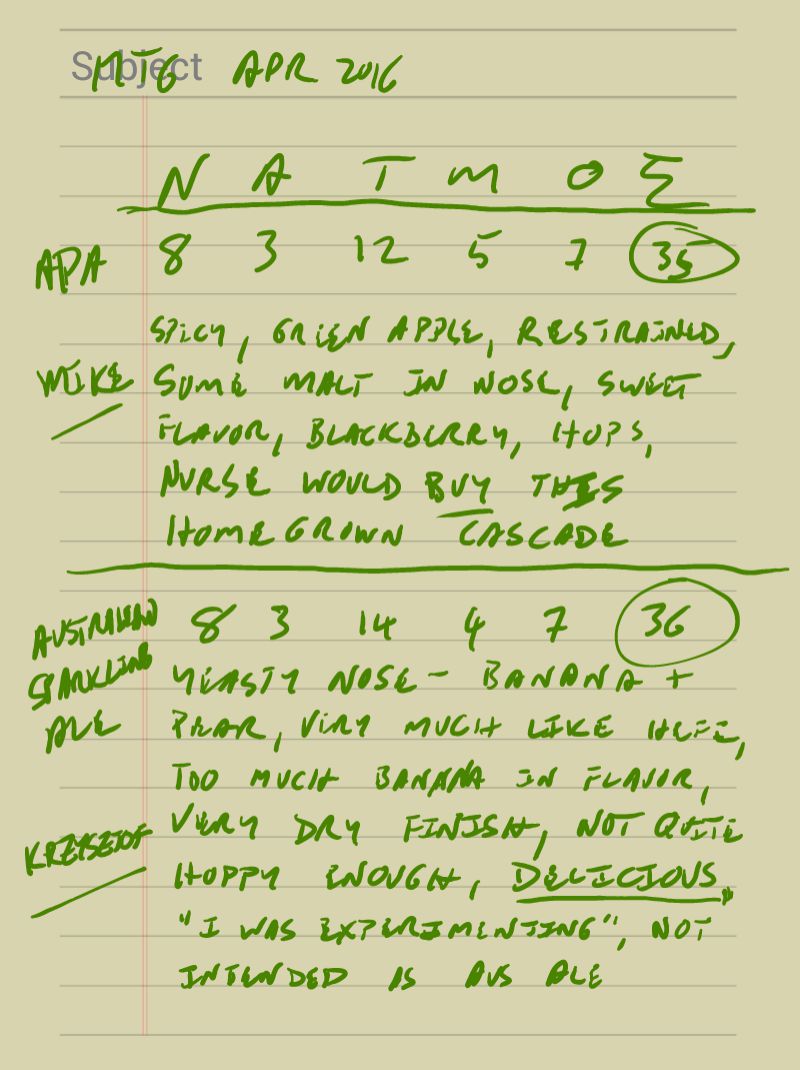 Subject
MTG APR 2016
N A T M O Σ
APA 8 3 12 5 7 35
SPICY, GREEN APPLE, RESTRAINED,
MIKE SOME MALT IN NOSE, SWEET
FLAVOR, BLACKBERRY, HOPS,
NURSE WOULD BUY THIS
HOMEGROWN CASCADE
AUSTRALIAN 8 3 14 4 7 36
SPARKLING YEASTY NOSE - BANANA +
ALE PEAR, VERY MUCH LIKE HEFE,
TOO MUCH BANANA IN FLAVOR,
KRZYSZTOF VERY DRY FINISH, NOT QUITE
HOPPY ENOUGH, DELICIOUS.
"I WAS EXPERIMENTING", NOT
INTENDED AS AUS ALE